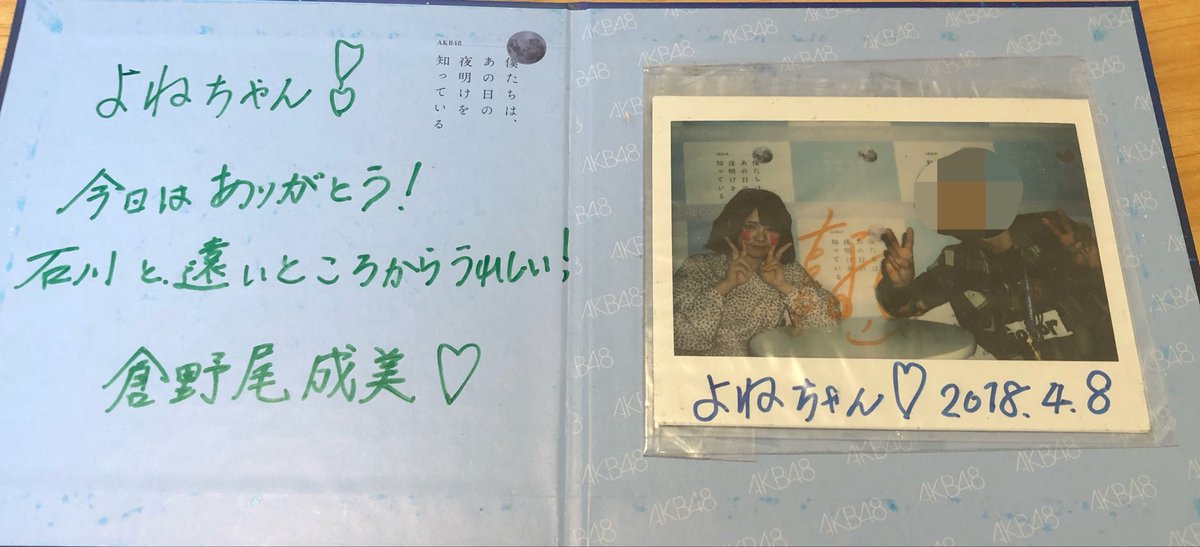 よねちゃん!
今日はありがとう!
石川と、遠いところからうれしい!
倉野尾成美♡
AKB48
僕たちは、
あの日の
夜明けを
知っている
AKB48
よねちゃん♡ 2018.4.8